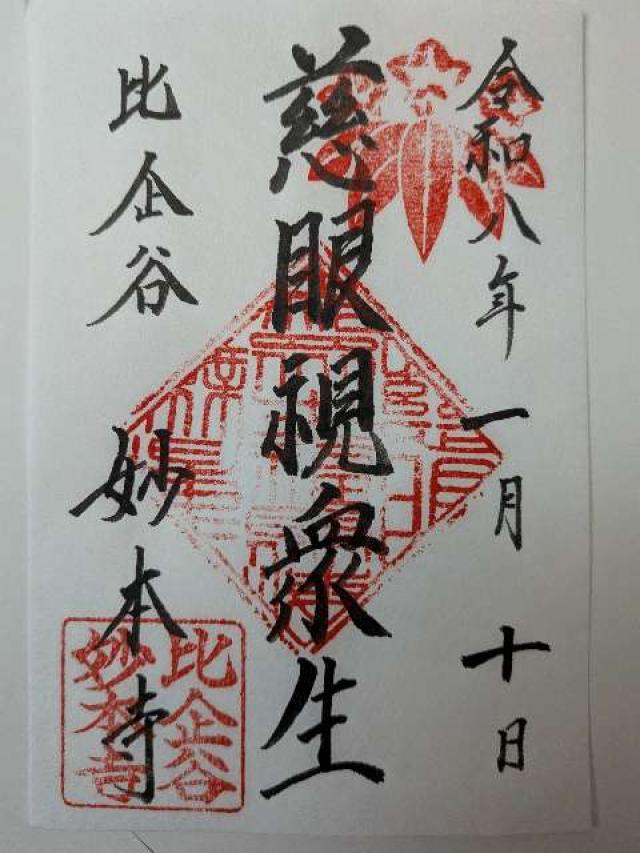 令和八年一月十日
慈眼視衆生
比企谷 妙本寺
比企谷
妙本寺